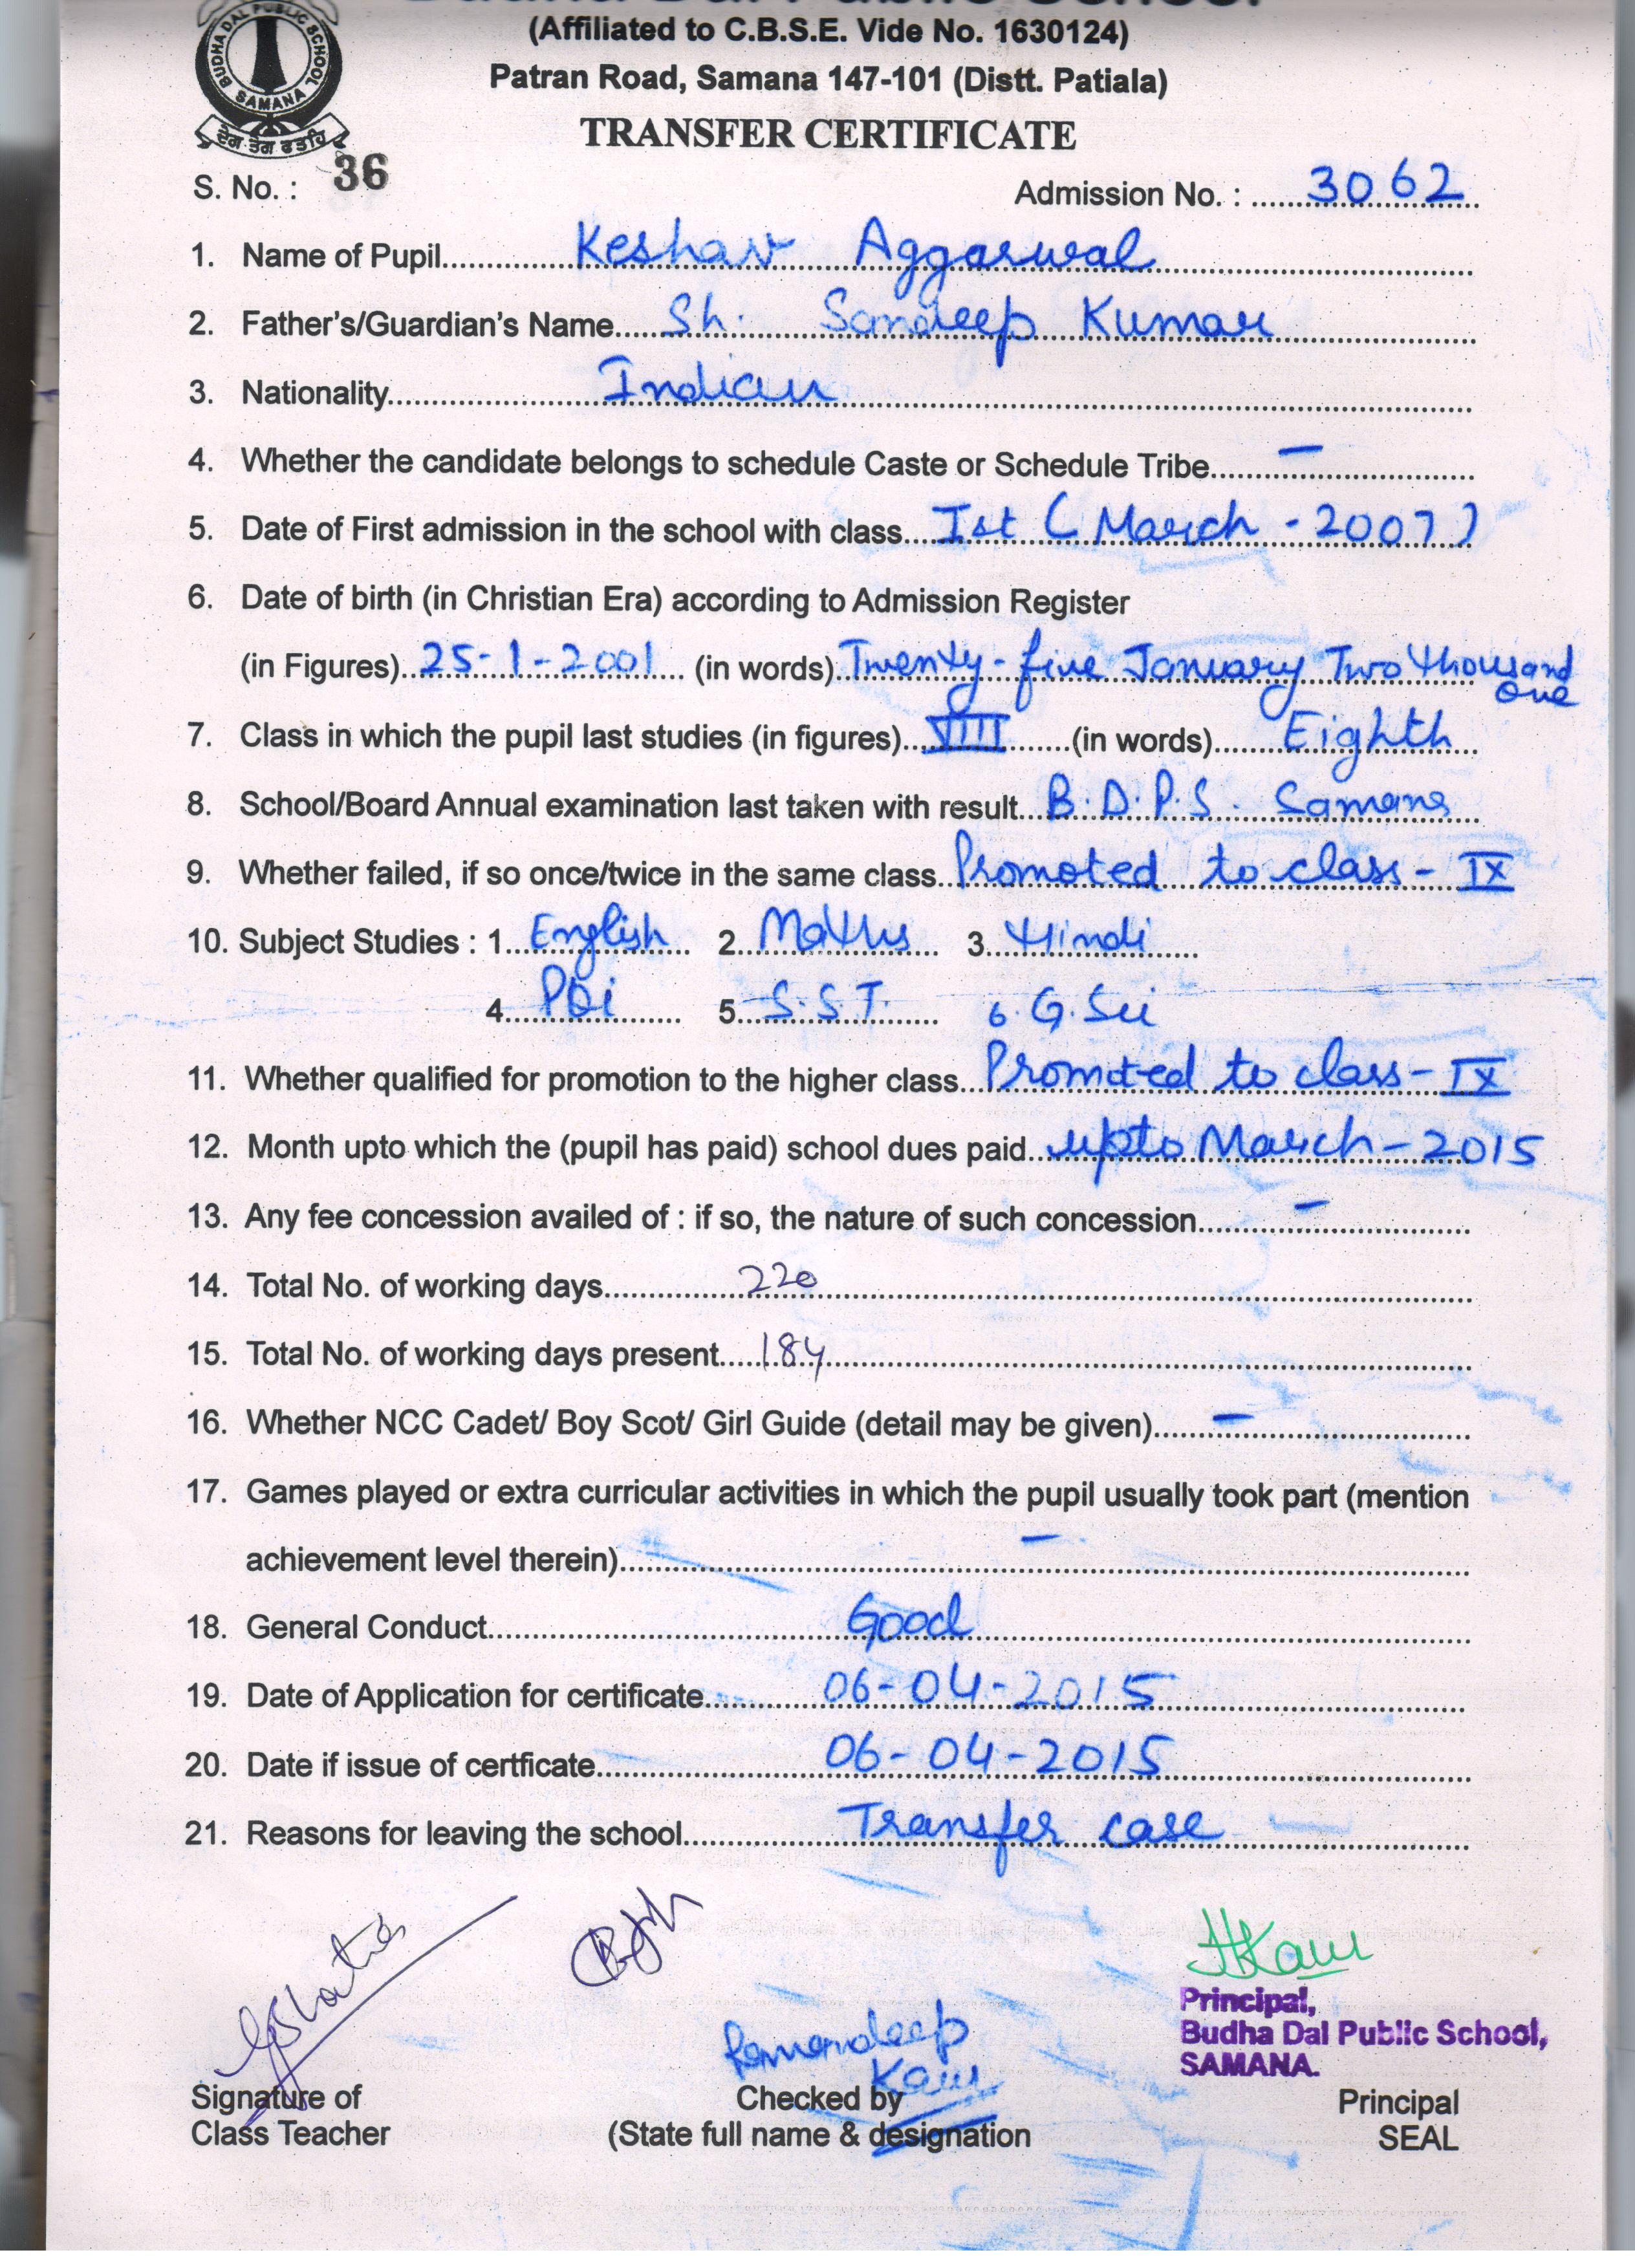 BUDHA DAL PUBLIC SCHOOL
SAMANA
ਦੇਗ ਤੇਗ ਫਤਹਿ
(Affiliated to C.B.S.E. Vide No. 1630124)
Patran Road, Samana 147-101 (Distt. Patiala)
TRANSFER CERTIFICATE
S. No. : 36 Admission No. : 3062
1. Name of Pupil Keshav Aggarwal
2. Father's/Guardian's Name Sh. Sandeep Kumar
3. Nationality Indian
4. Whether the candidate belongs to schedule Caste or Schedule Tribe –
5. Date of First admission in the school with class Ist (March - 2007)
6. Date of birth (in Christian Era) according to Admission Register
(in Figures) 25-1-2001 (in words) Twenty-five January Two thousand
one
7. Class in which the pupil last studies (in figures) VIII (in words) Eighth
8. School/Board Annual examination last taken with result B.D.P.S. Samana
9. Whether failed, if so once/twice in the same class Promoted to class - IX
10. Subject Studies : 1. English 2. Maths 3. Hindi
4. Pbi 5. S.S.T. 6. G. Sci
11. Whether qualified for promotion to the higher class Promoted to class - IX
12. Month upto which the (pupil has paid) school dues paid upto March - 2015
13. Any fee concession availed of : if so, the nature of such concession –
14. Total No. of working days 220
15. Total No. of working days present 184
16. Whether NCC Cadet/ Boy Scot/ Girl Guide (detail may be given) –
17. Games played or extra curricular activities in which the pupil usually took part (mention
achievement level therein) –
18. General Conduct Good
19. Date of Application for certificate 06-04-2015
20. Date if issue of certficate 06-04-2015
21. Reasons for leaving the school Transfer case
Principal,
Budha Dal Public School,
SAMANA.
Ramandeep
Kaur
Signature of
Class Teacher
Checked by
(State full name & designation
Principal
SEAL